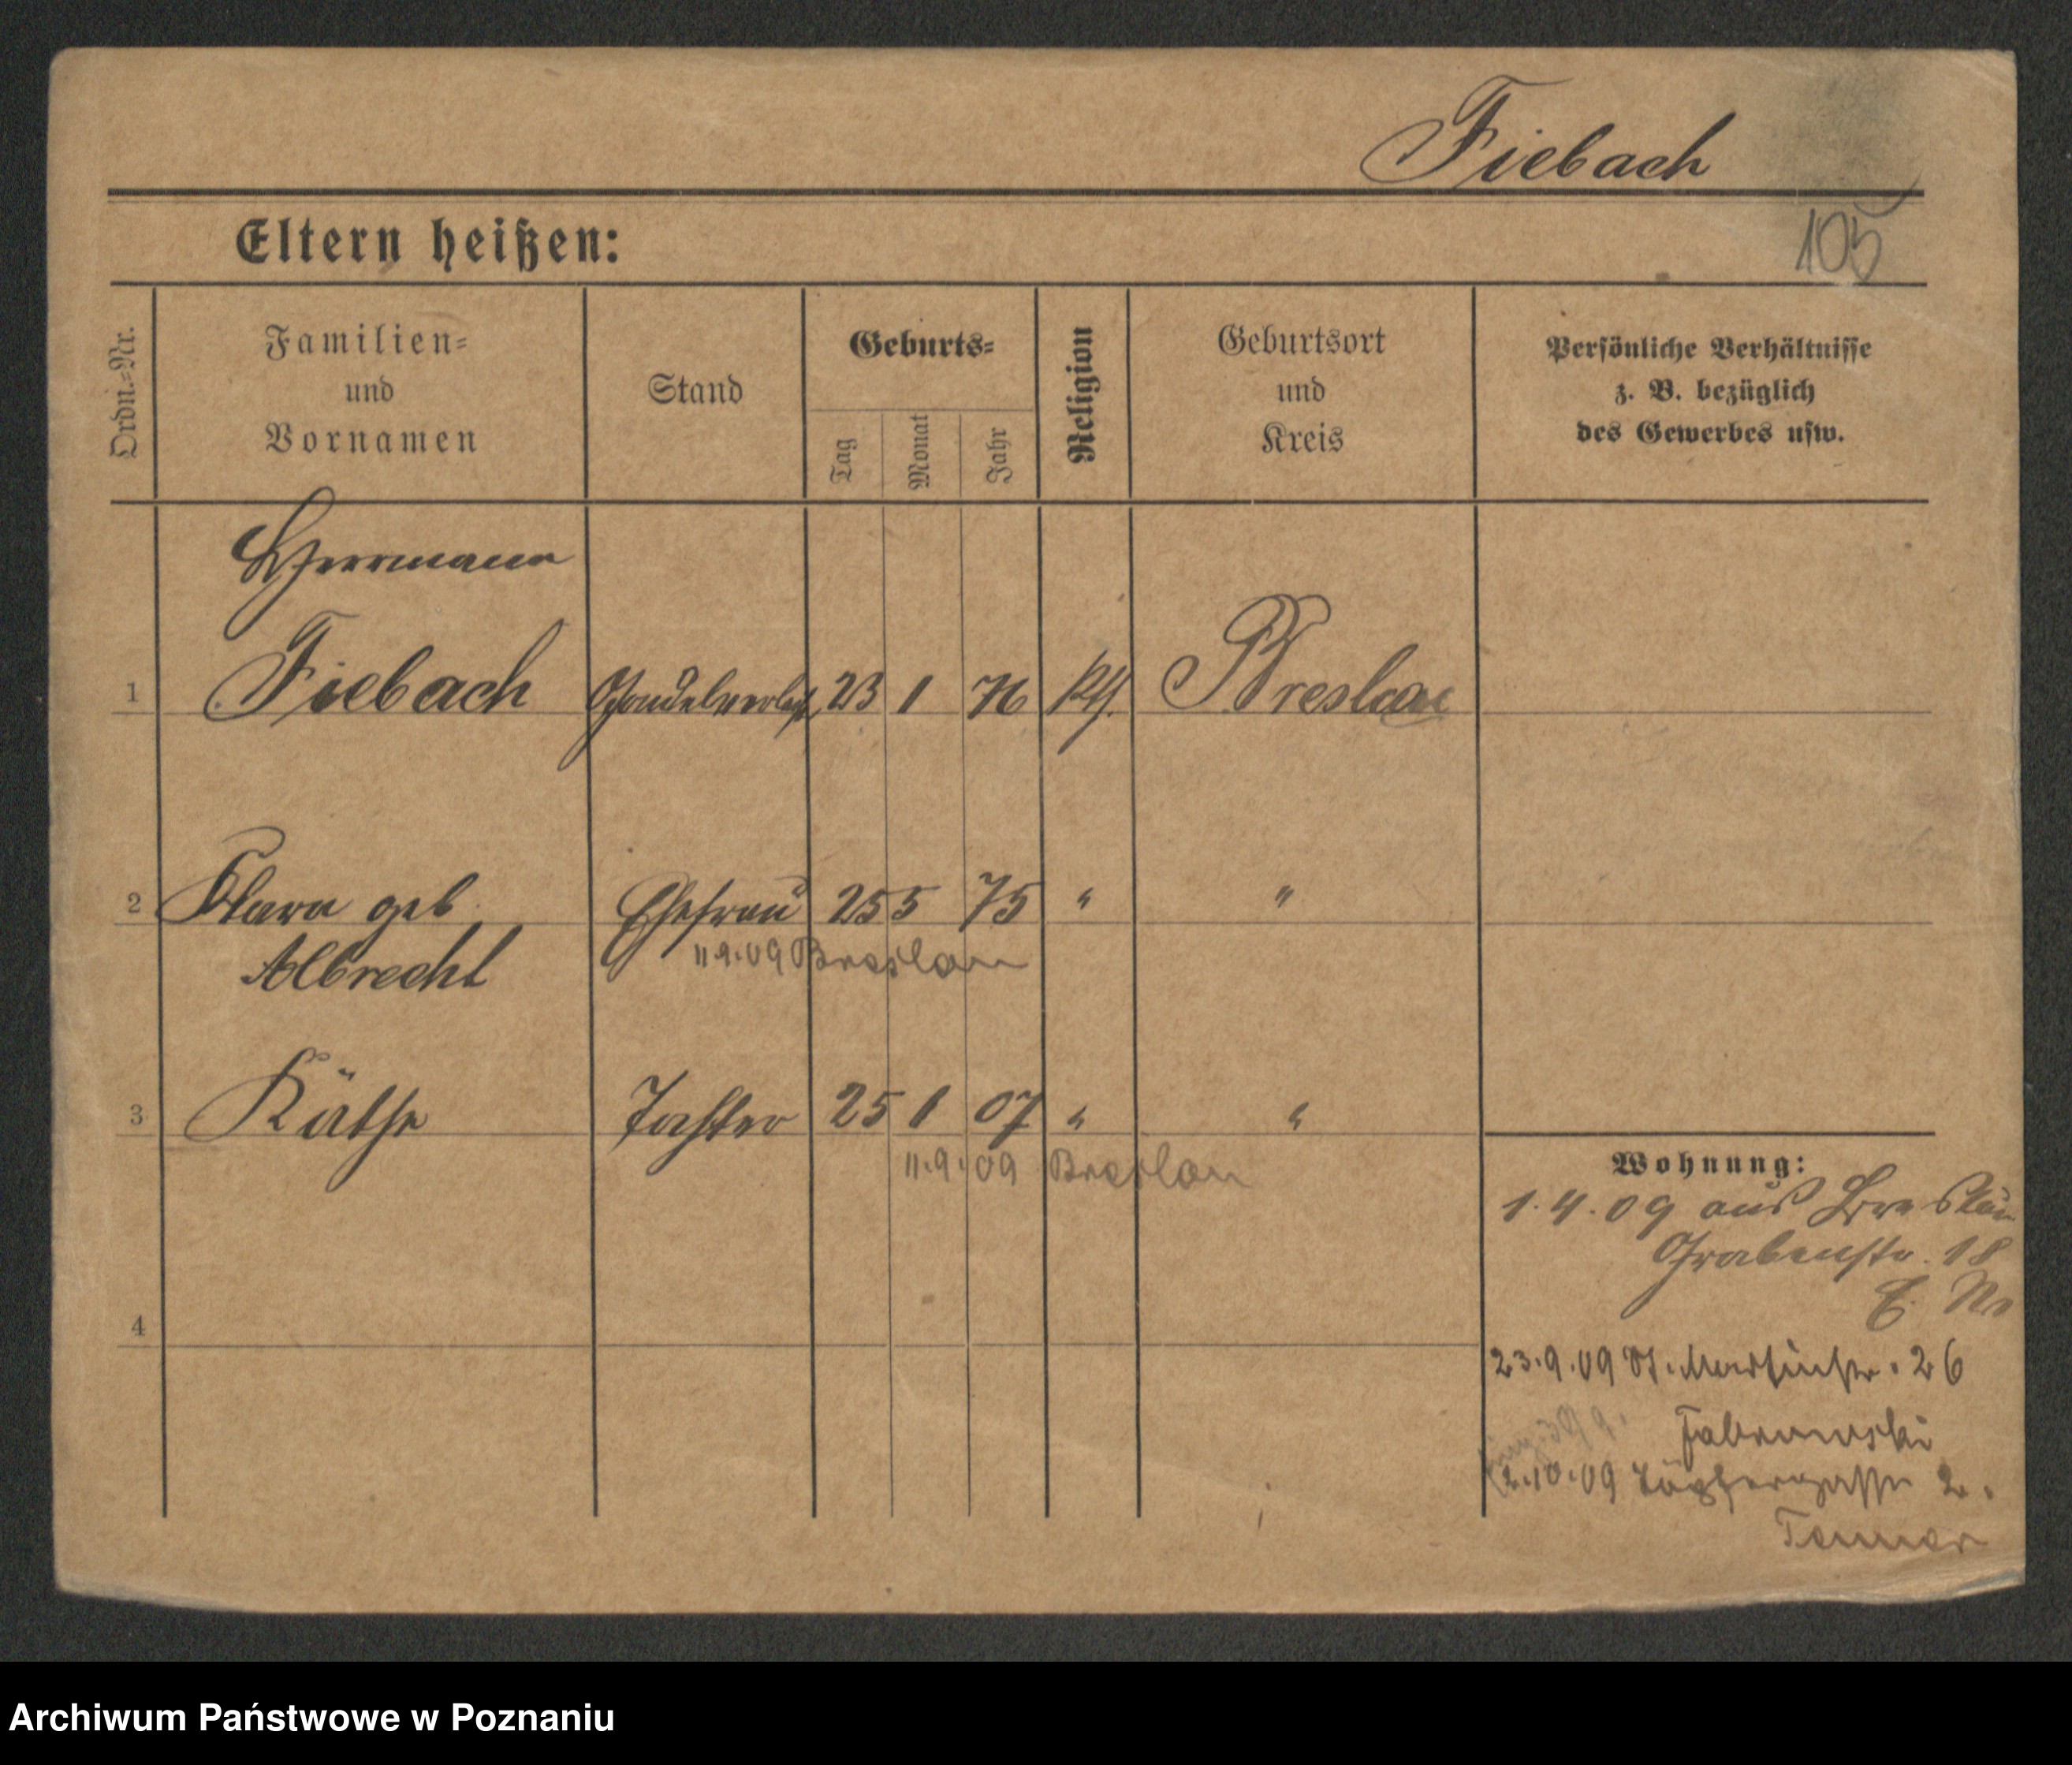 Fiebach
105
Eltern heißen:
Ordn.=Nr.
Familien=
und
Vornamen
Stand
Geburts=
Tag
Monat
Jahr
Religion
Geburtsort
und
Kreis
Persönliche Verhältnisse
z. B. bezüglich
des Gewerbes usw.
Herrmann
1 Fiebach 23 1 76 Breslau
2 Klara geb. Ehefrau 25 5 75 " "
Albrecht
11.9.09 Breslau
3 Käthe Tochter 25 1 07 " "
11.9.09 Breslau
4
Wohnung:
1.4.09 aus Breslau
Grabenstr. 18
23.9.09 St. Martinstr. 26
2.10.09 Töpfergasse 2.
Archiwum Państwowe w Poznaniu